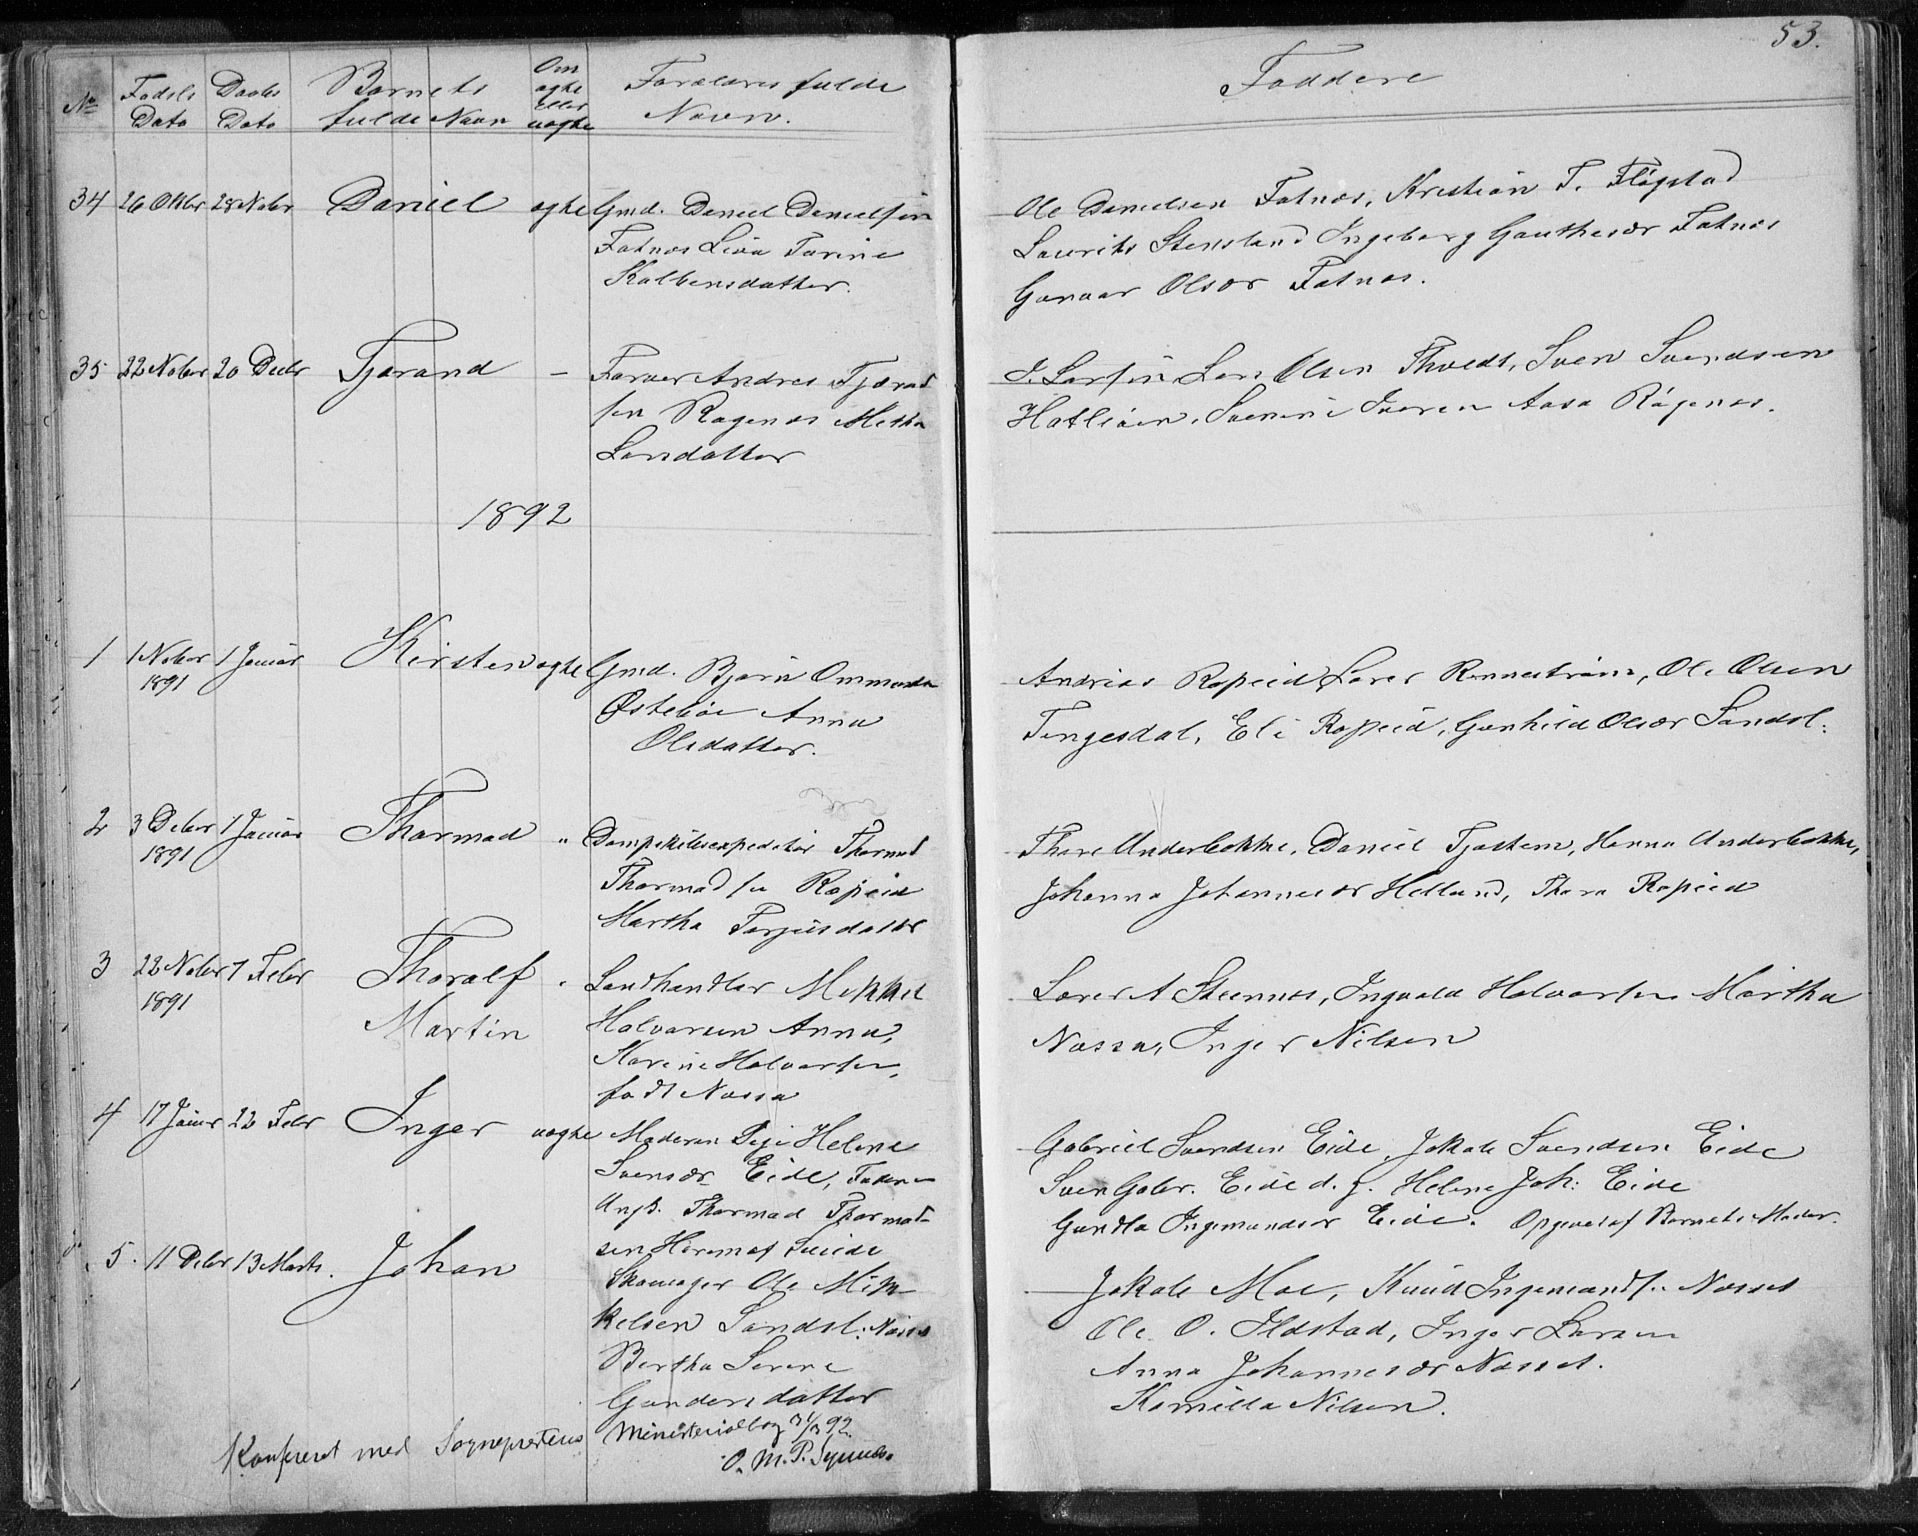 53.
No Fødsels Dato Daabs Dato Barnets fulde Navn Om ægte eller uægte Forældres fulde Navn.
Faddere
34 26 Oktbr 28 Novbr Daniel ægte Gmd. Daniel Danielsen
Fatnæs Lina Tarine
Kolbensdatter.
Ole Danielsen Fatnæs, Kristian T. Fløgstad
Laurits Stensland Ingeborg Gauthesdr Fatnæs
Gunvor Olsdr Fatnæs.
35 22 Novbr 20 Decbr Tjærand – Farver Andres Tjærand
sen Røgenæs Metha
Larsdatter
I. Larsen Lars Olsen Thvedt, Sven Svendsen
Hatløien, Severine Iversen Aasa Røgenæs.
1892
1 1 Novbr 1891 1 Januar Kirsten ægte Gmd. Bjørn Ommunds
Østebøe Anna
Olsdatter.
Andreas Ropeid, Lærer Rennestraum, Ole Olsen
Tengesdal, Eli Ropeid, Gunhild Olsdr Sandsl:
2 3 Decbr 1891 1 Januar Thormod " Dampskibsexpeditør Thormod
Thormodsen Ropeid
Martha Torjusdatter
Thore Underbakke, Daniel Tjøstem, Hanna Underbakke,
Johanna Johannesdr Helland, Thora Ropeid
3 22 Novbr 1891 7 Febr Thoralf
Martin " Landhandler Mikkel
Halvorsen Anna,
Marine Halvorsen,
født Næssa
Lærer A Steinnes, Ingvald Halvorsen Martha
Næssa, Inger Nilsen
4 17 Januar 22 Febr Inger uægte Moderen Pige Helene
Svensdr Eide, Faderen
Ungk. Thormod Thormod-
sen Herem af Suldal
Gabriel Svendsen Eide, Jakob Svendsen Eide
Sven Gabr. Eide d. y. Helene Joh: Eide
Gundla Ingemundsdr Eide. Opgivet af Barnets Moder.
5. 11 Decbr 13 Marts. Johan
Skomager Ole Mik-
kelsen Sandsl: Næsset
Bertha Serine
Gundersdatter
Jakob Moe, Knud Ingemundsen Næsset
Ole O. Ilstad, Inger Larsen
Anna Johannesdr Næsset.
Kamilla Nilsen.
Konfereret med Sogneprestens Ministerialbog 31/3 92.
O. M. P.